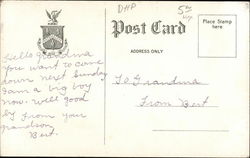 DHP
Post Card
Place Stamp
here
ADDRESS ONLY
Hello grandma
you want to come
down next Sunday
I am a big boy
now. Well good
by from your
grandson
Bert.
To Grandma
From Bert